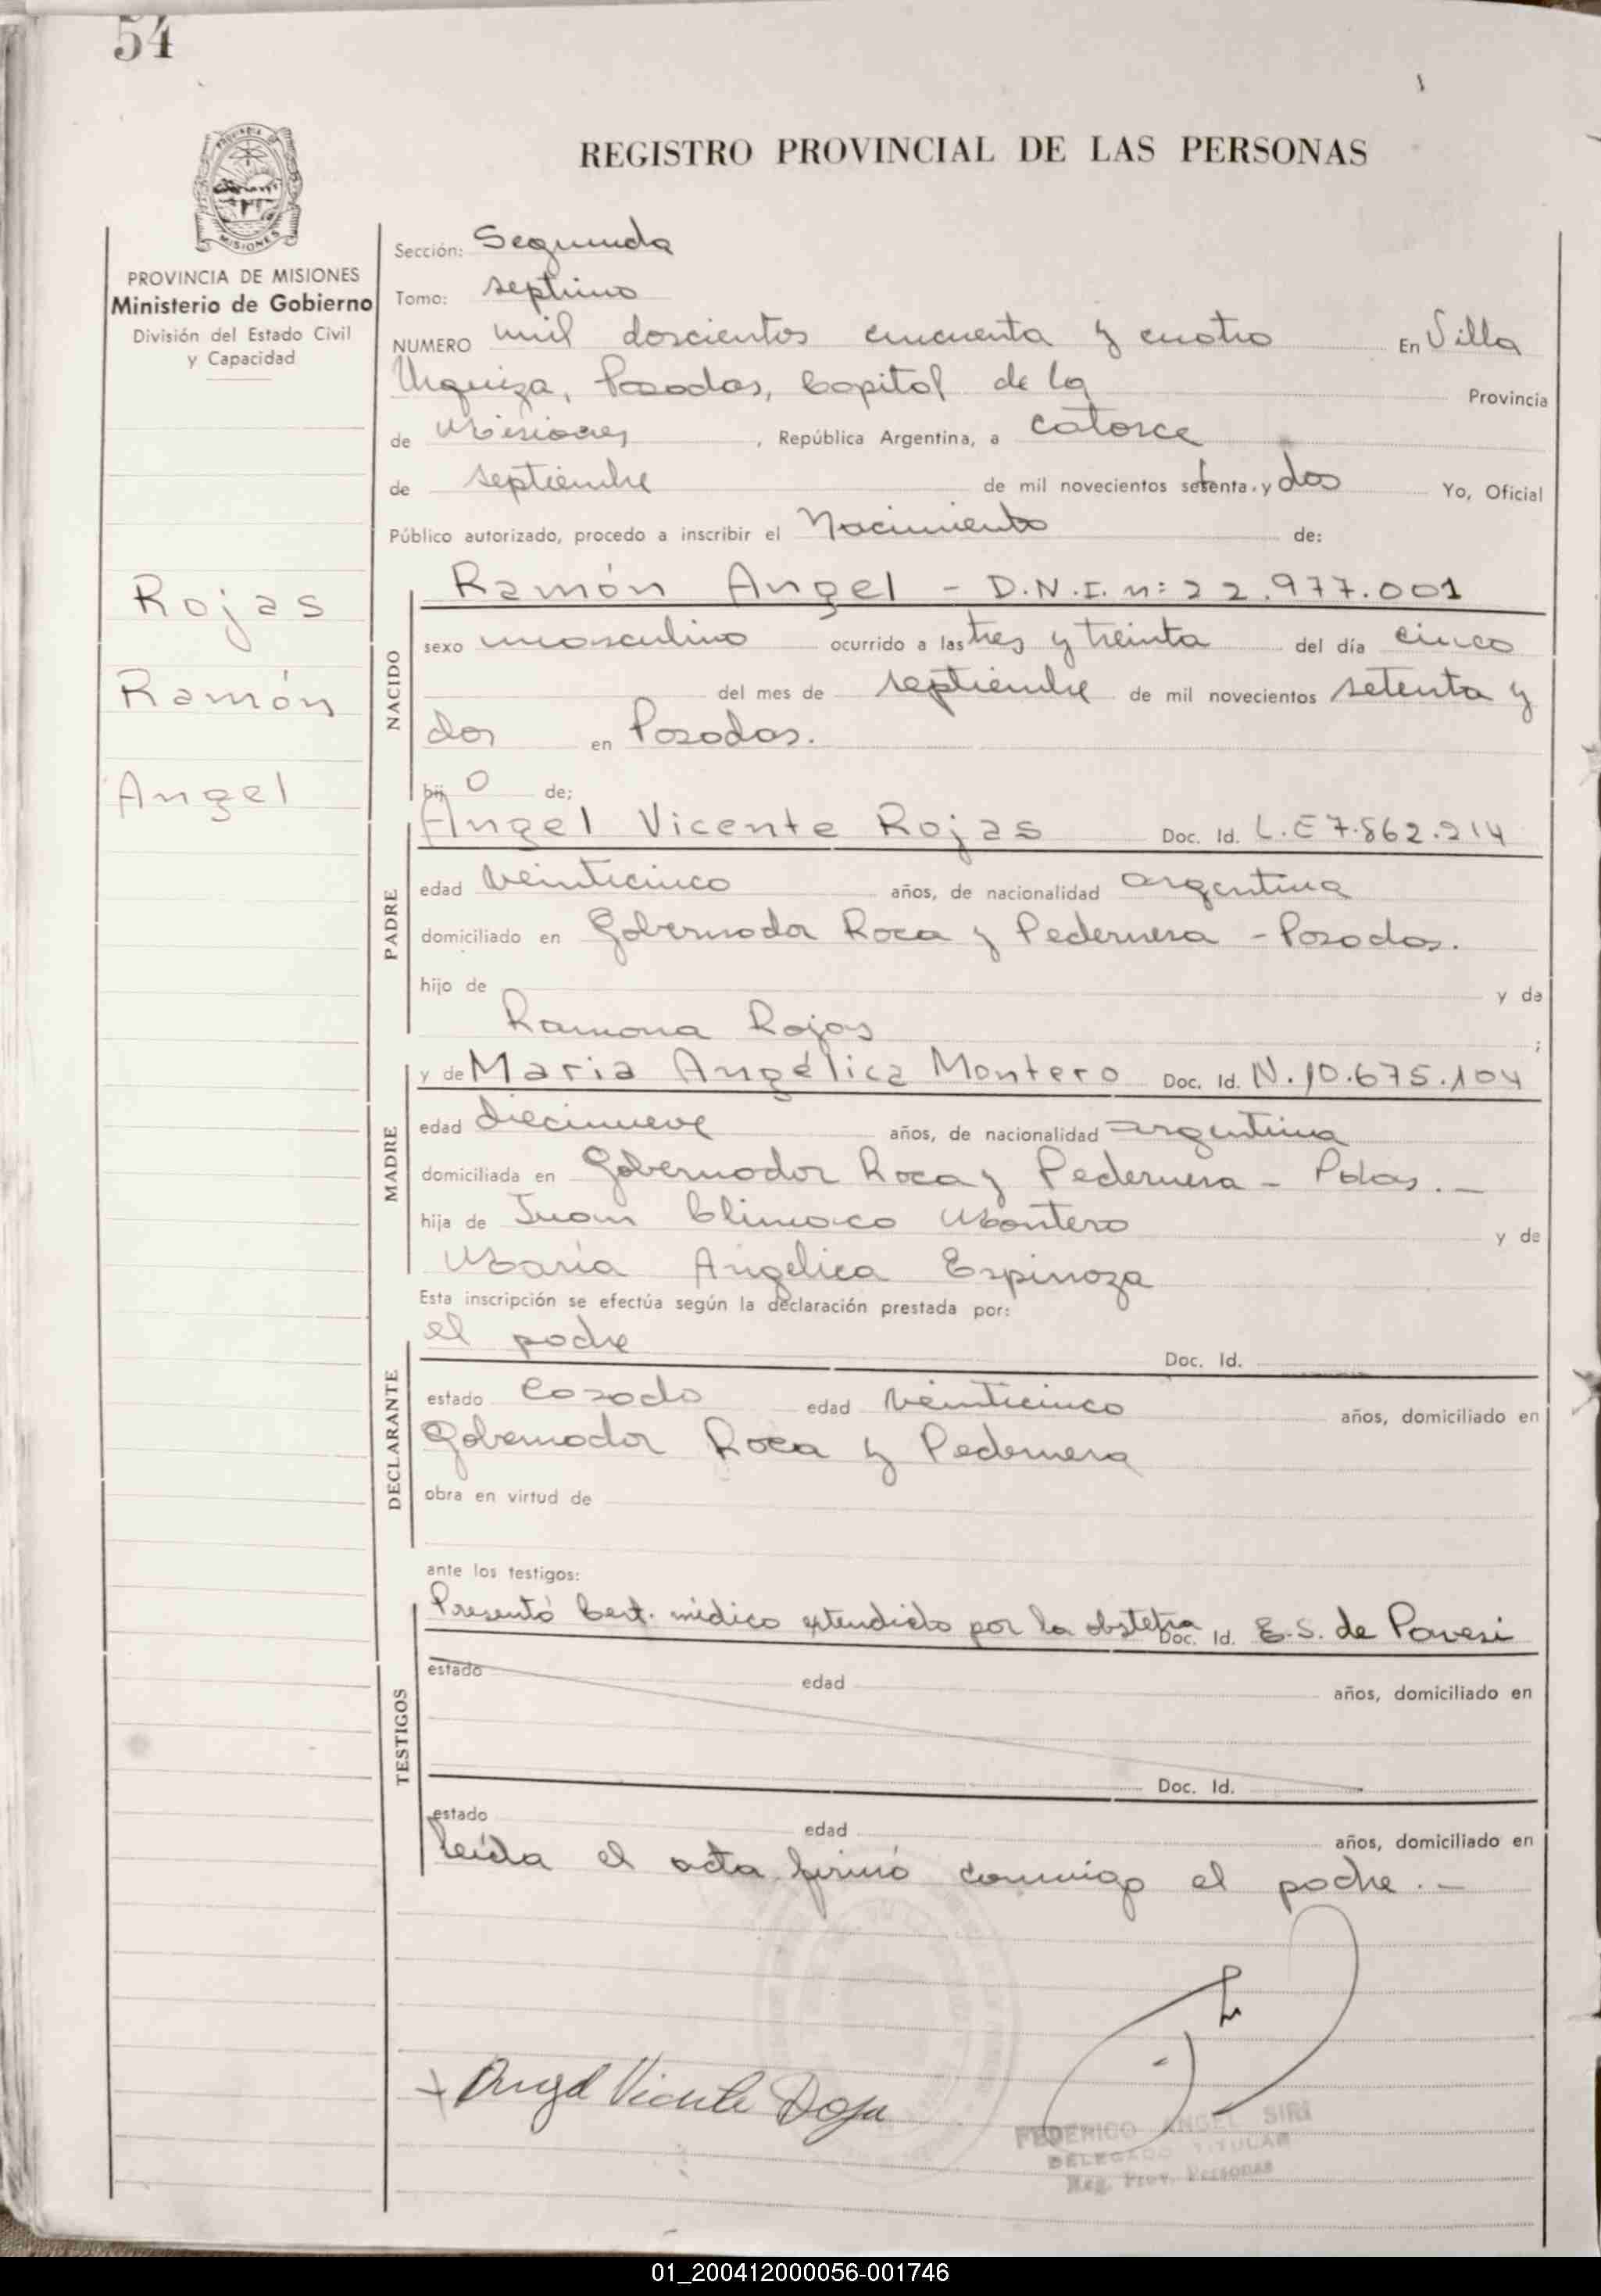 54
REGISTRO PROVINCIAL DE LAS PERSONAS
PROVINCIA DE MISIONES
MISIONES
PROVINCIA DE MISIONES
Ministerio de Gobierno
División del Estado Civil
y Capacidad
Rojas
Ramón
Angel
Sección: Segunda
Tomo: septimo
NUMERO mil doscientos cincuenta y cuatro En Villa
Urquiza, Posadas, Capital de la Provincia
de Misiones, República Argentina, a catorce
de septiembre de mil novecientos setenta y dos Yo, Oficial
Público autorizado, procedo a inscribir el Nacimiento de:
NACIDO
Ramón Angel - D.N.I. n: 22.977.001
sexo masculino ocurrido a las tres y treinta del día cinco
del mes de septiembre de mil novecientos setenta y
dos en Posadas.
hij o de:
PADRE
Angel Vicente Rojas Doc. Id. L.E 7.862.214
edad veinticinco años, de nacionalidad argentina
domiciliado en Gobernador Roca y Pedernera - Posadas.
hijo de y de
Ramona Rojas ;
MADRE
y de Maria Angélica Montero Doc. Id. N.10.675.104
edad diecinueve años, de nacionalidad argentina
domiciliada en Gobernador Roca y Pedernera - Pdas. -
hija de Juan Climaco Montero y de
María Angelica Espinoza
Esta inscripción se efectúa según la declaración prestada por:
DECLARANTE
el padre Doc. Id.
estado casado edad veinticinco años, domiciliado en
Gobernador Roca y Pedernera
obra en virtud de
ante los testigos:
TESTIGOS
Presentó Cert. médico extendido por la obstetra Doc. Id. E.S. de Pavesi
estado edad años, domiciliado en
Doc. Id.
estado edad años, domiciliado en
Leída el acta firmó conmigo el padre. -
Angel Vicente Roja
FEDERICO ANGEL SIRI
DELEGADO TITULAR
Reg. Prov. Personas
01_200412000056-001746